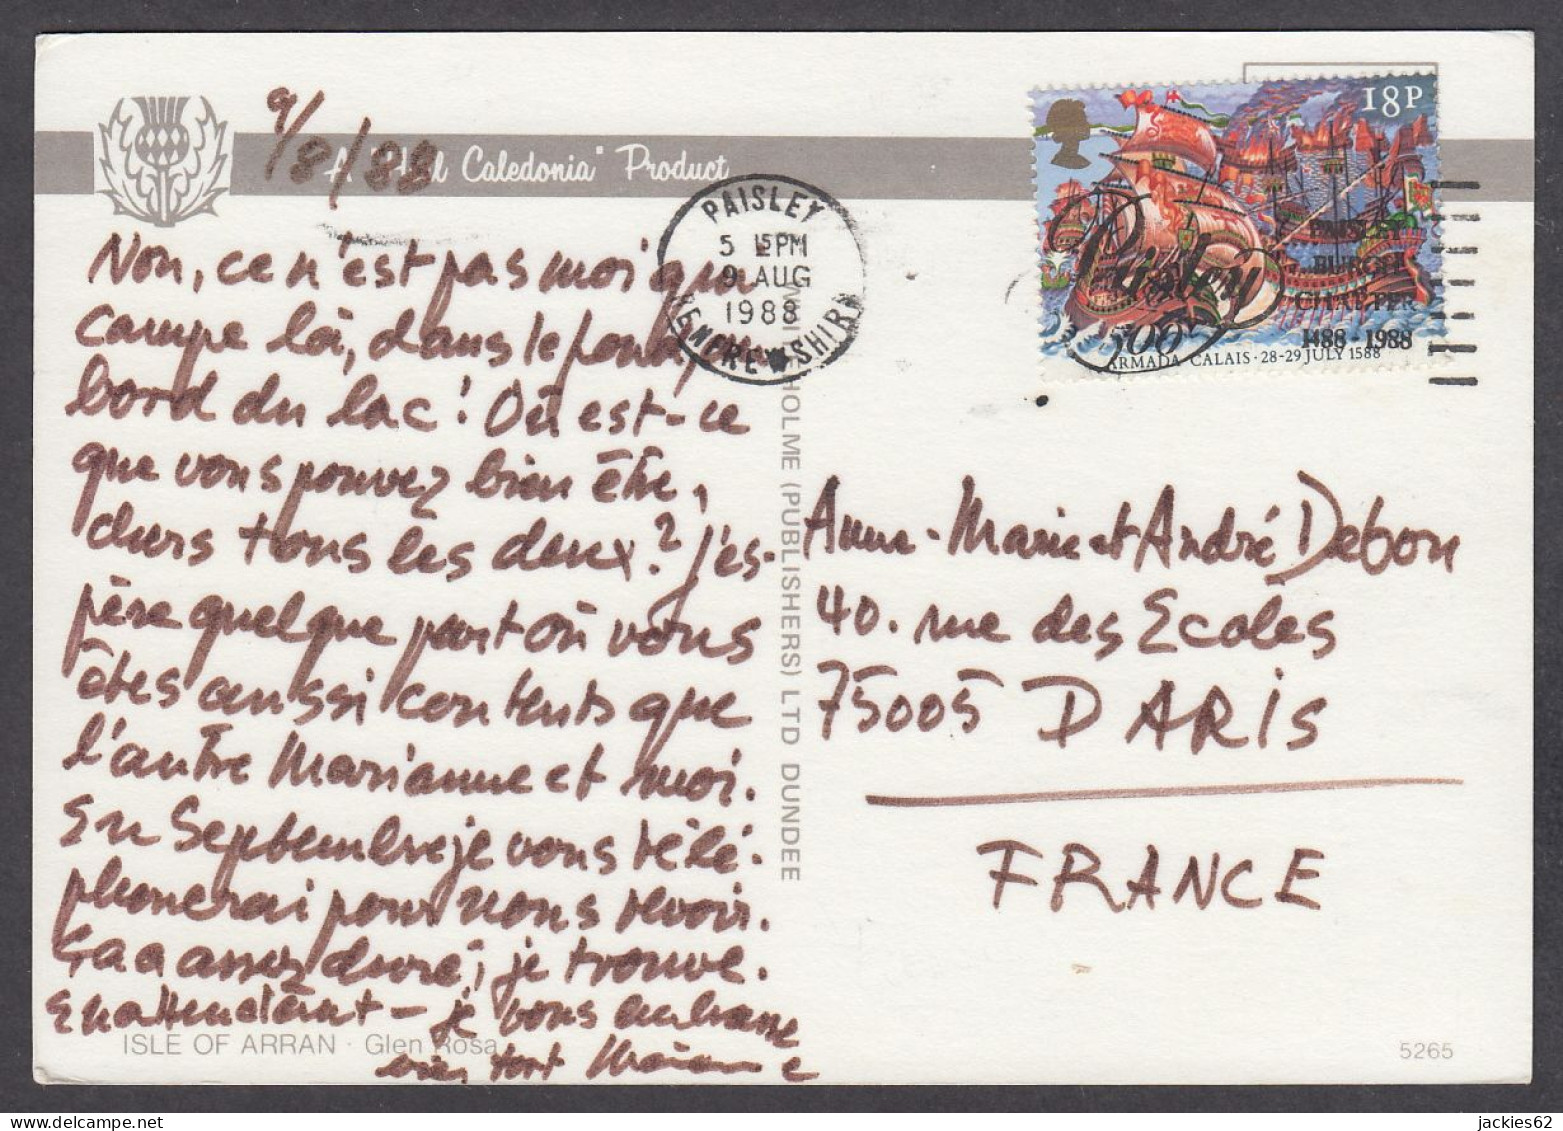 9/8/88
Caledonia" Product
Non, ce n'est pas moi qui
campe là, dans le fond,
bord du lac! Où est-ce
que vous pouvez bien être,
tous les deux? J'es-
père quelque part où vous
êtes aussi contents que
l'autre Marianne et moi.
En Septembre je vous télé-
phonerai pour nous revoir.
Ça a assez duré, je trouve.
En attendant – je vous embrasse
bien fort Marianne
ISLE OF ARRAN · Glen Rosa
PAISLEY
5 15PM
9 AUG
1988
RENFREWSHIRE
HOLME (PUBLISHERS) LTD DUNDEE
18P
Paisley
500
PAISLEY
BURGH
CHARTER
1488-1988
ARMADA·CALAIS·28-29 JULY 1588
Anne-Marie et André Debon
40. rue des Ecoles
75005 PARIS
FRANCE
5265
jackies62